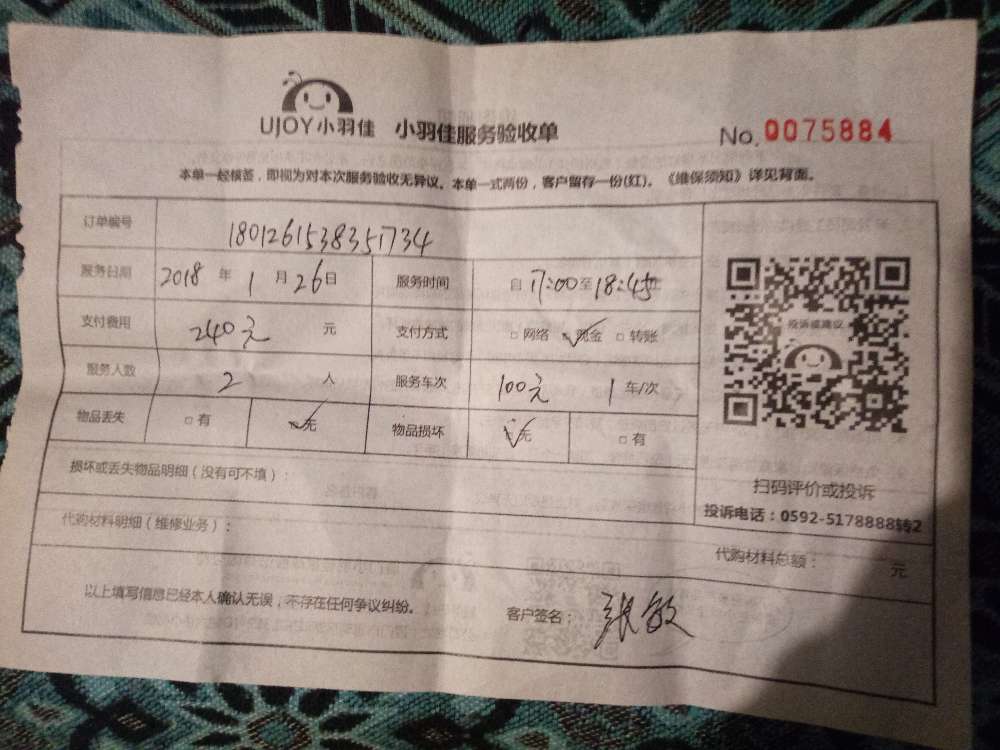 UJOY小羽佳 小羽佳服务验收单 No.0075884
本单一经核签，即视为对本次服务验收无异议。本单一式两份，客户留存一份(红)。《维保须知》详见背面。
订单编号 1801261538351734
服务日期 2018年1月26日 服务时间 自17:00至18:45止
支付费用 240元 元 支付方式 □网络 ☑现金 □转账
服务人数 2人 服务车次 100元 1车/次
物品丢失 □有 ☑无 物品损坏 ☑无 □有
投诉或建议
扫码评价或投诉
投诉电话：0592-5178888转2
损坏或丢失物品明细（没有可不填）：
代购材料明细（维修业务）：
代购材料总额： 元
以上填写信息已经本人确认无误，不存在任何争议纠纷。 客户签名：张敏